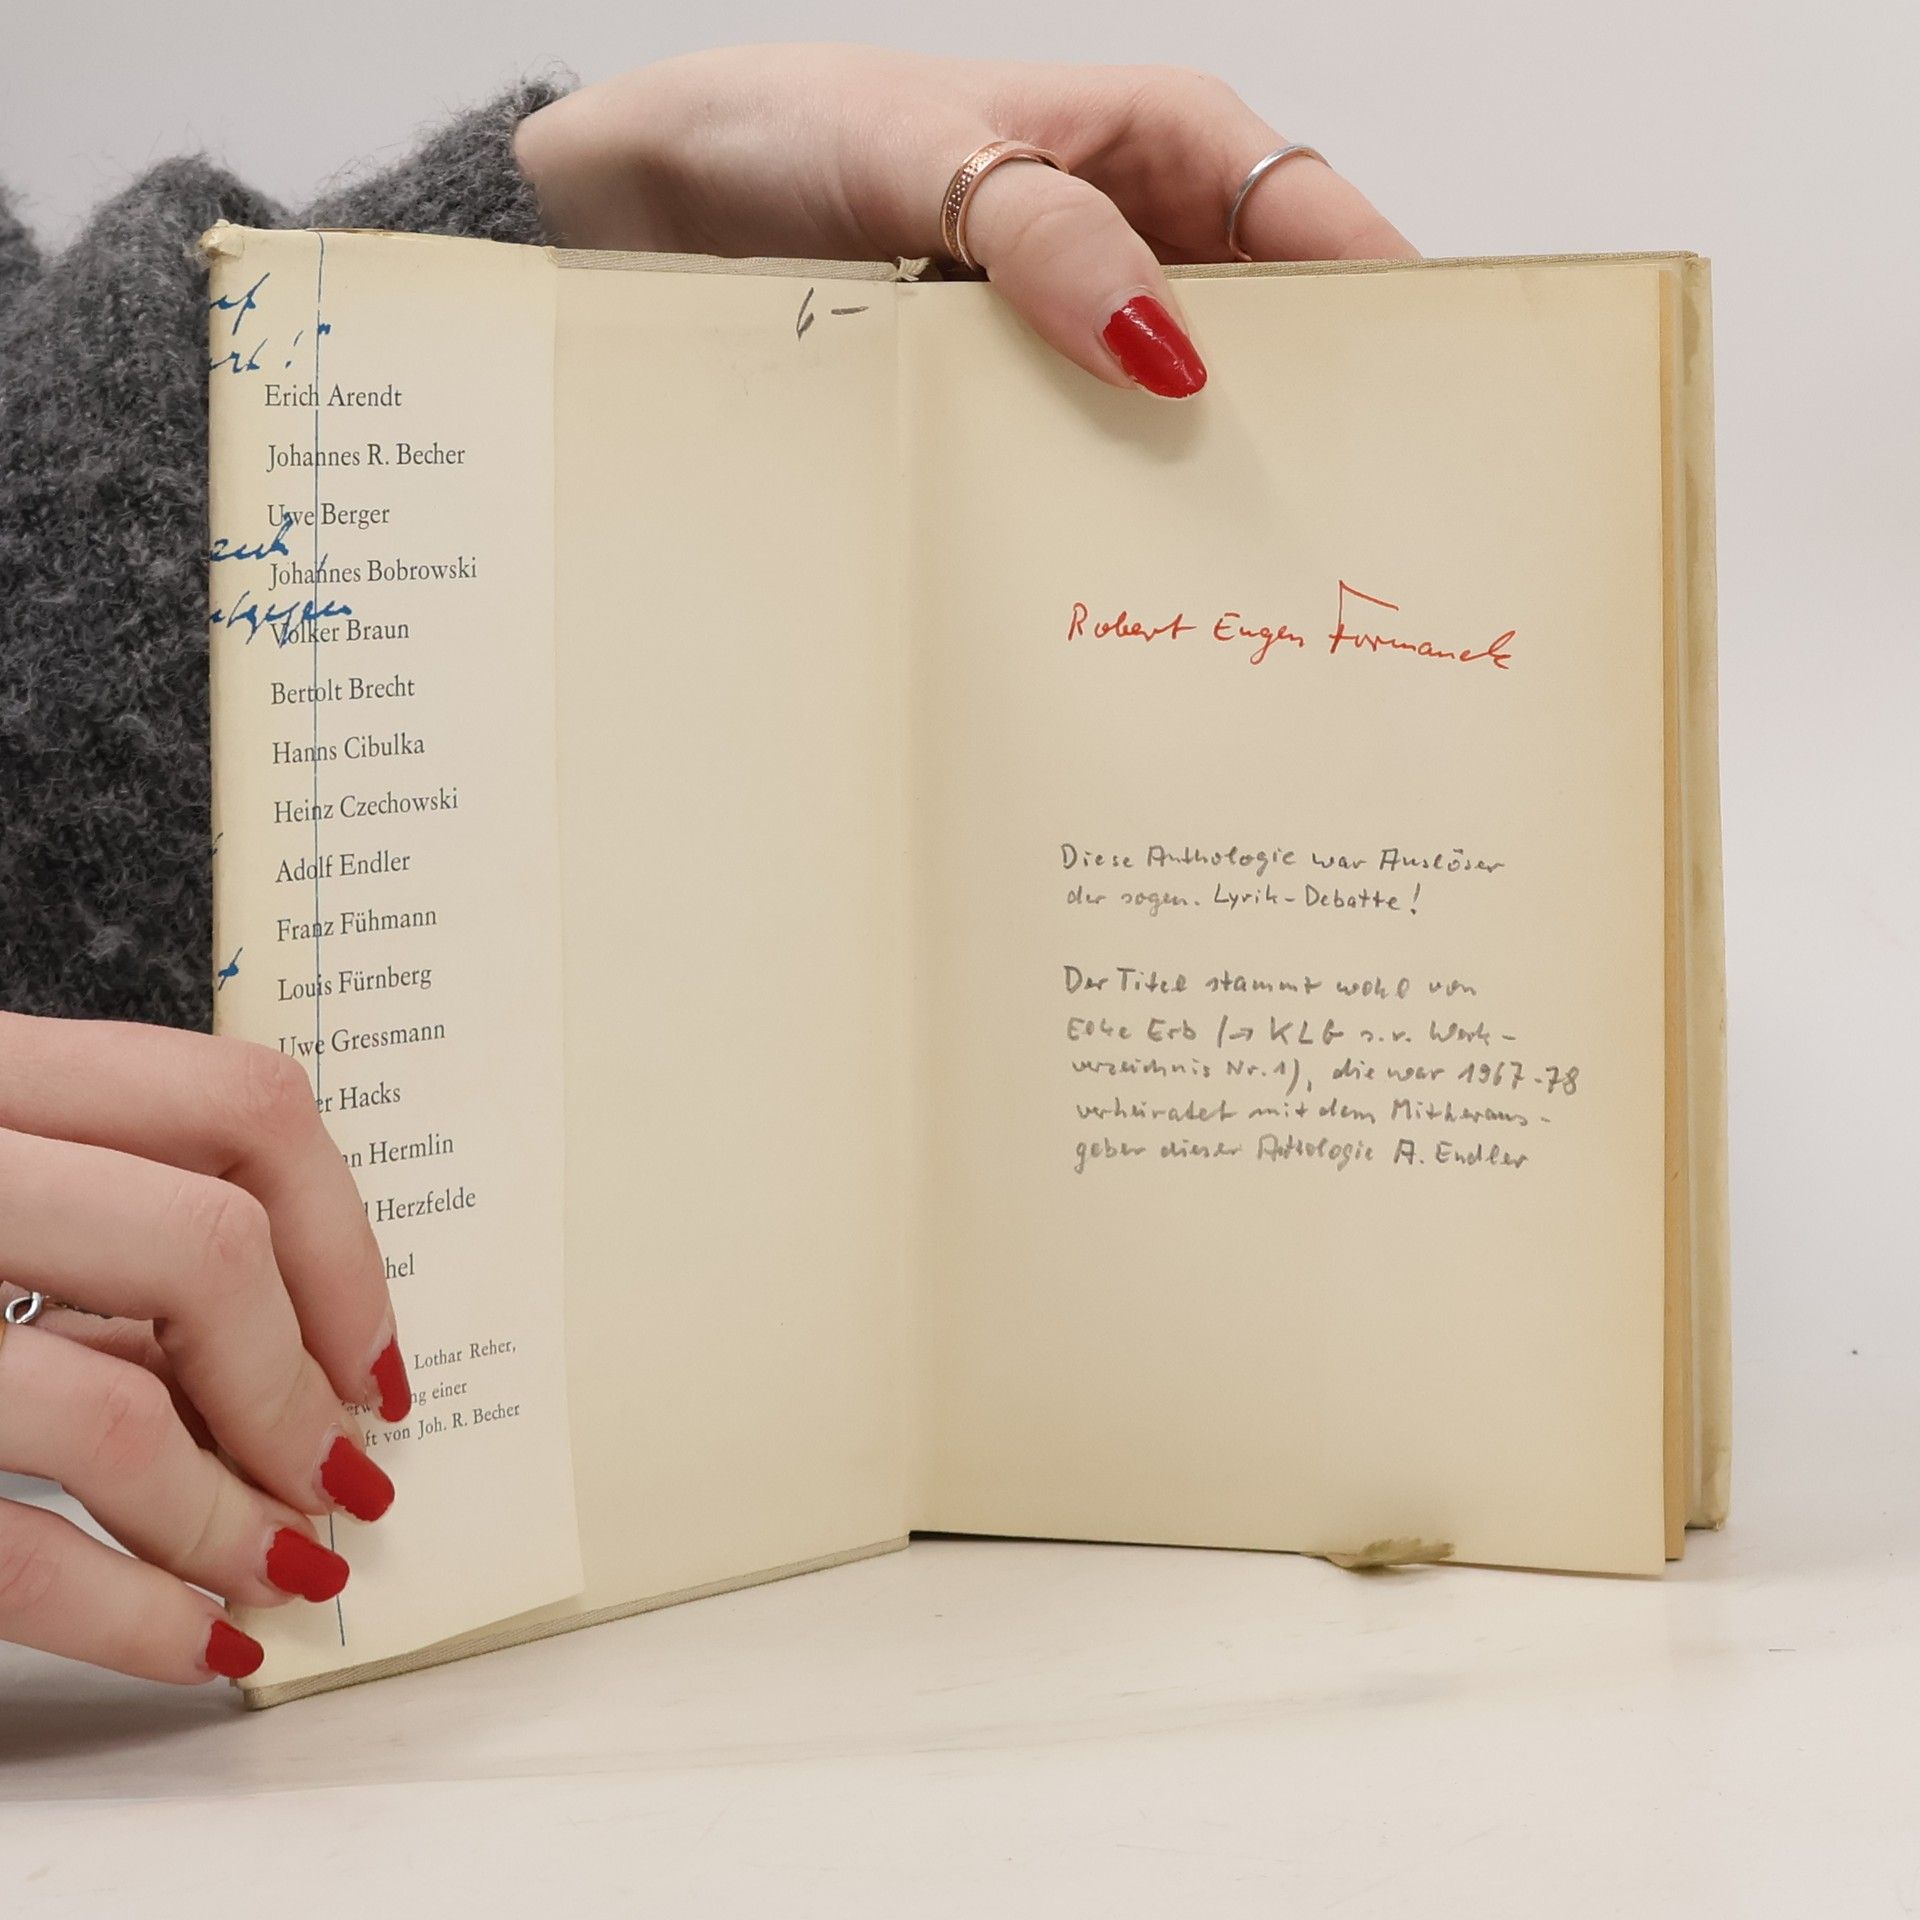 rt!"
Erich Arendt
Johannes R. Becher
Uwe Berger
Johannes Bobrowski
Volker Braun
Bertolt Brecht
Hanns Cibulka
Heinz Czechowski
Adolf Endler
Franz Fühmann
Louis Fürnberg
Uwe Gressmann
er Hacks
an Hermlin
d Herzfelde
hel
Lothar Reher,
ng einer
ft von Joh. R. Becher
6-
Robert Eugen Formanek
Diese Anthologie war Auslöser
der sogen. Lyrik-Debatte!
Der Titel stammt wohl von
Elke Erb (→ KLG s.v. Werk-
verzeichnis Nr. 1), die war 1967-78
verheiratet mit dem Mitheraus-
geber dieser Anthologie A. Endler